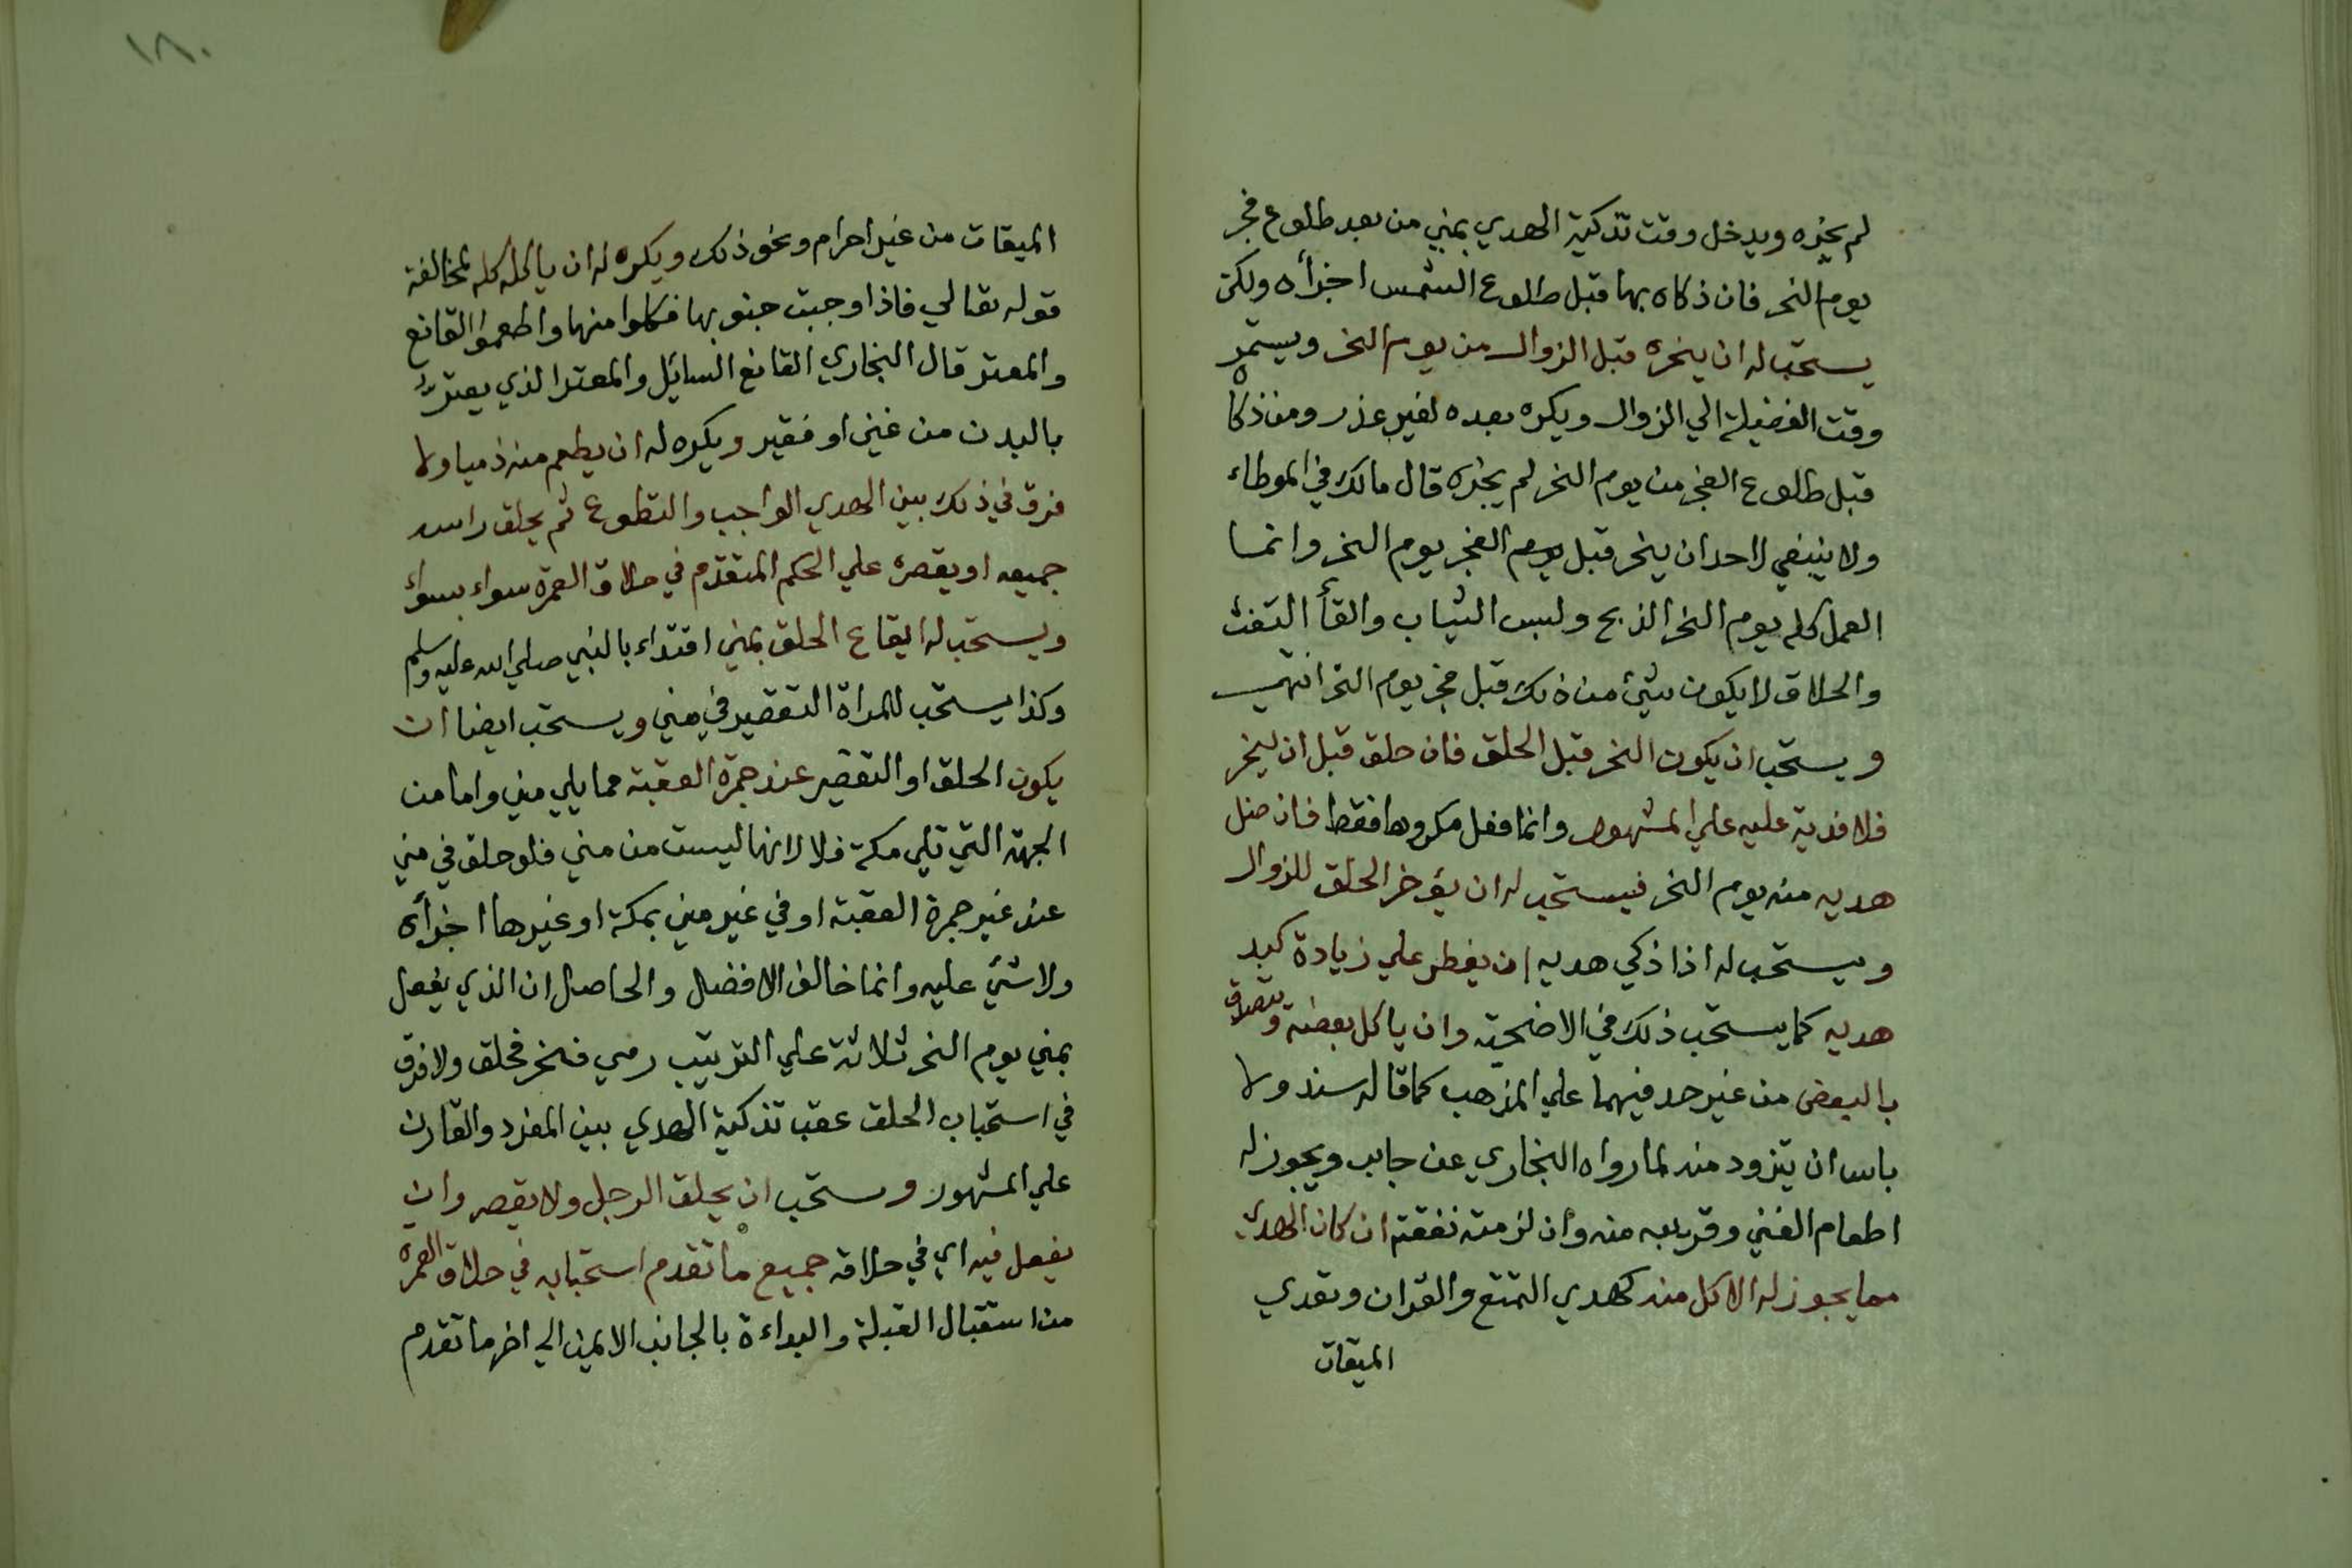 لم يجزه ويدخل وقت تذكية الهدي بمني من بعد طلوع فجر
يوم النحر فان ذكاه بها قبل طلوع الشمس اجزأه ولكن
يستحب له ان ينحره قبل الزوال من يوم النحر ويستمر
وقت الفضيلة الي الزوال ويكره بعده لغير عذر ومن ذكاه
قبل طلوع الفجر من يوم النحر لم يجزه قال مالك في الموطاء
ولا ينبغي لاحد ان ينحر قبل يوم الفجر يوم النحر وانما
العمل كله يوم النحر الذبح ولبس الثياب والقأ التفث
والحلاق لا يكون شيئ من ذلك قبل فجر يوم النحر انتهي
ويستحب ان يكون النحر قبل الحلق فان حلق قبل ان ينحر
فلا فدية عليه علي المشهور وانما فعل مكروها فقط فان ضل
هديه منه يوم النحر فيستحب له ان يؤخر الحلق للزوال
ويستحب له اذا ذكي هديه ان يفطر علي زيادة كبد
هديه كما يستحب ذلك في الاضحية وان ياكل بعضه ويتصدق
بالبعض من غير حد فيهما علي المذهب كما قاله سند ولا
باس ان يتزود منه لما رواه البخاري عن جابر ويجوز له
اطعام الغني وقريبه منه وان لزمته نفقته ان كان الهدي
مما يجوز له الاكل منه كهدي التمتع والقران وتعدي
الميقات
١٨٠
الميقات من غير احرام ونحو ذلك ويكره له ان ياكله كله لمخالفة
قوله تعالي فاذا وجبت جنوبها فكلوا منها واطعموا القانع
والمعتر قال البخاري القانع السائل والمعتر الذي يعتر
بالبدن من غني او فقير ويكره له ان يطعم منه ذميا ولا
فرق في ذلك بين الهدي الواجب والتطوع ثم يحلق راسه
جميعه او يقصره علي الحكم المتقدم في حلاق العمرة سواء بسواء
ويستحب له ايقاع الحلق بمني اقتداء بالنبي صلي الله عليه وسلم
وكذا يستحب للمراة التقصير في مني ويستحب ايضا ان
يكون الحلق او التقصير عند جمرة العقبة مما يلي مني واما من
الجهة التي تلي مكة فلا لانها ليست من مني فلو حلق في مني
عند غير جمرة العقبة او في غير مني بمكة او غيرها اجزأه
ولا شيئ عليه وانما خالف الافضل والحاصل ان الذي يفعل
بمني يوم النحر ثلاثة علي الترتيب رمي فنحر فحلق ولا فرق
في استحباب الحلق عقب تذكية الهدي بين المفرد والقارن
علي المشهور ويستحب ان يحلق الرجل ولا يقصر وان
يفعل فيه اي في حلاقه جميع ما تقدم استحبابه في حلاق العمرة
من استقبال القبلة والبداءة بالجانب الايمن الي اخر ما تقدم